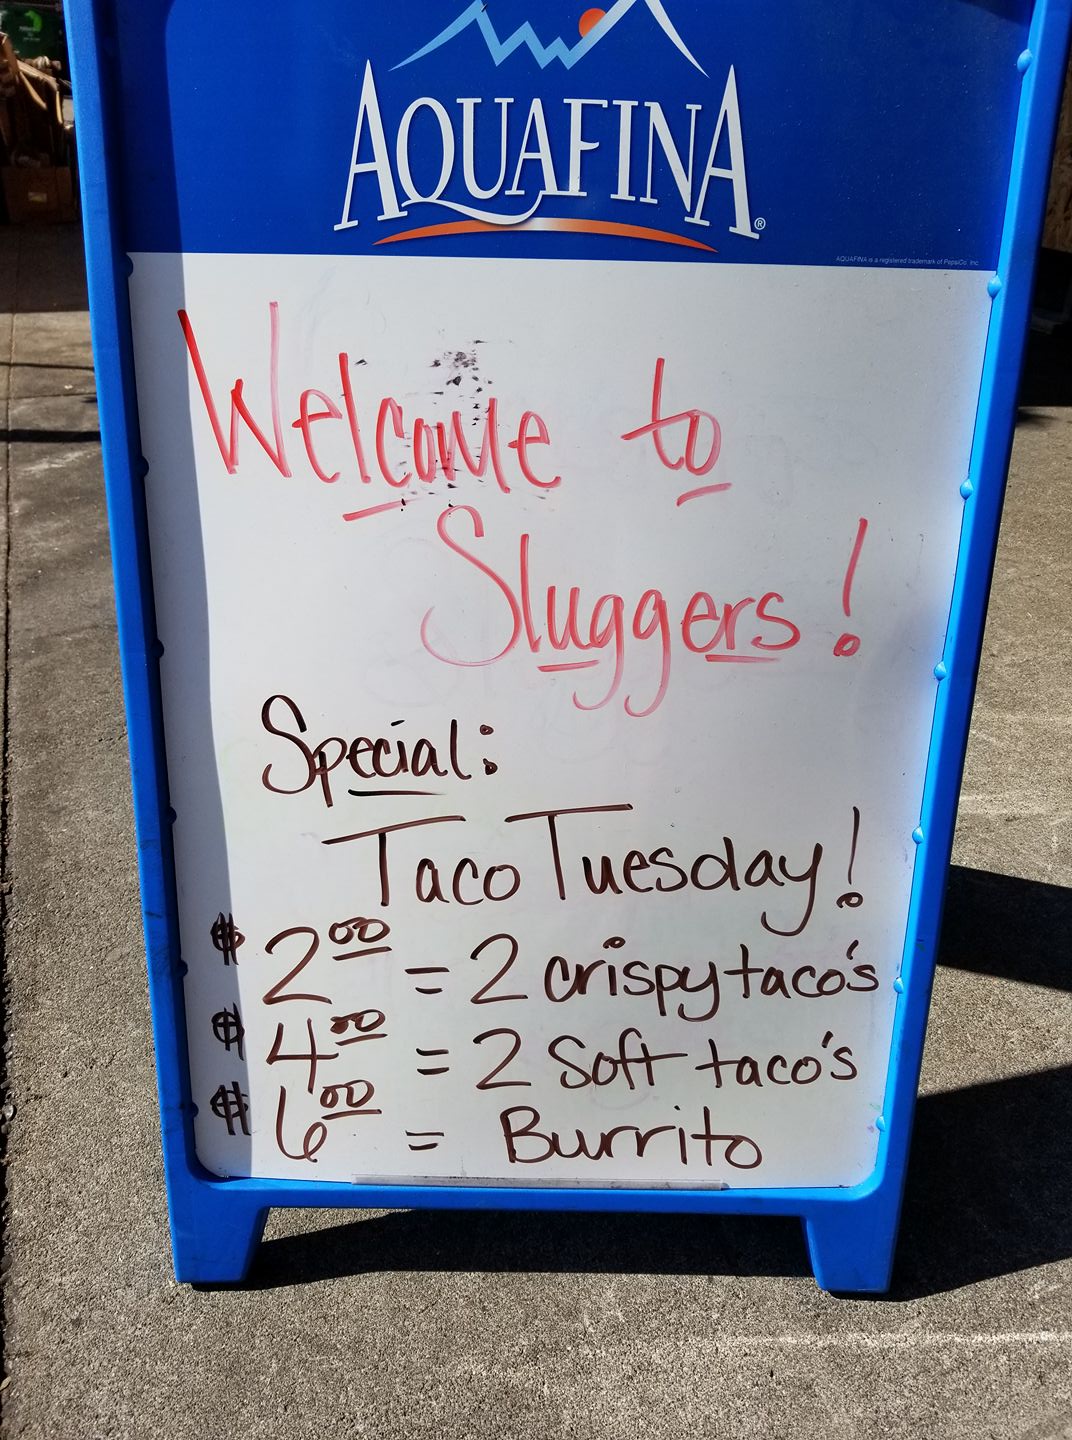 AQUAFINA®
AQUAFINA is a registered trademark of PepsiCo, Inc.
Welcome to
Sluggers!
Special:
Taco Tuesday!
$2.00 = 2 crispy taco's
$4.00 = 2 Soft taco's
$6.00 = Burrito